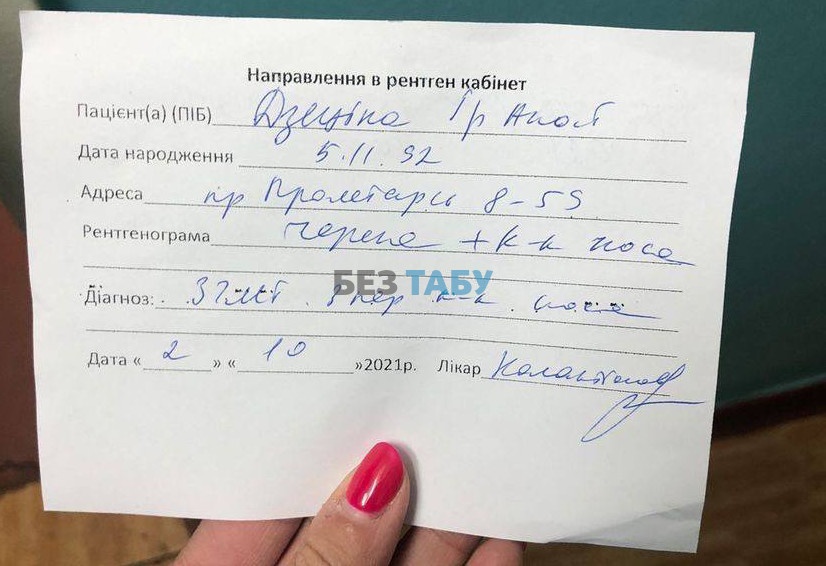 Направлення в рентген кабінет
Пацієнт(а) (ПІБ) Дзецина Ір Анат
Дата народження 5.11.92
Адреса пр Пролетарськ 8-59
Рентгенограма черепа + к-к носа
БЕЗ ТАБУ
Діагноз: ЗЧМТ. Зпер к-к носа
Дата « 2 » « 10 »2021р. Лікар